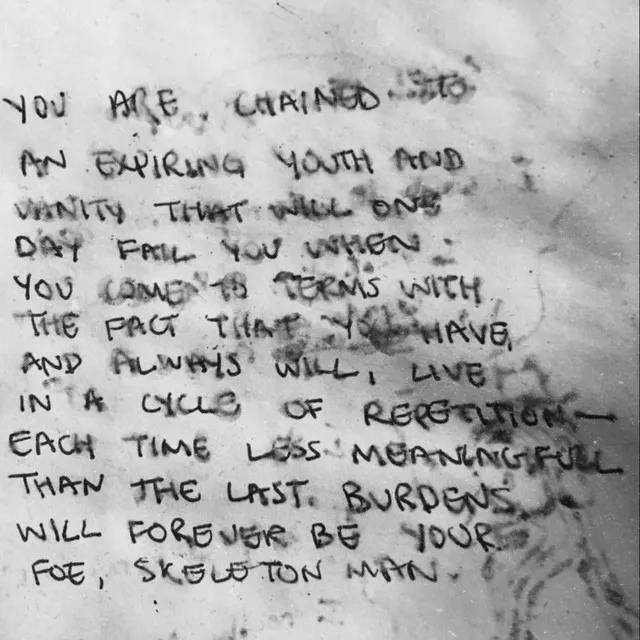 YOU ARE CHAINED TO
AN EXPIRING YOUTH AND
VANITY THAT WILL ONE
DAY FAIL YOU WHEN
YOU COME TO TERMS WITH
THE FACT THAT YOU HAVE,
AND ALWAYS WILL, LIVE
IN A CYCLE OF REPETITION—
EACH TIME LESS MEANINGFULL
THAN THE LAST. BURDENS
WILL FOREVER BE YOUR
FOE, SKELETON MAN.